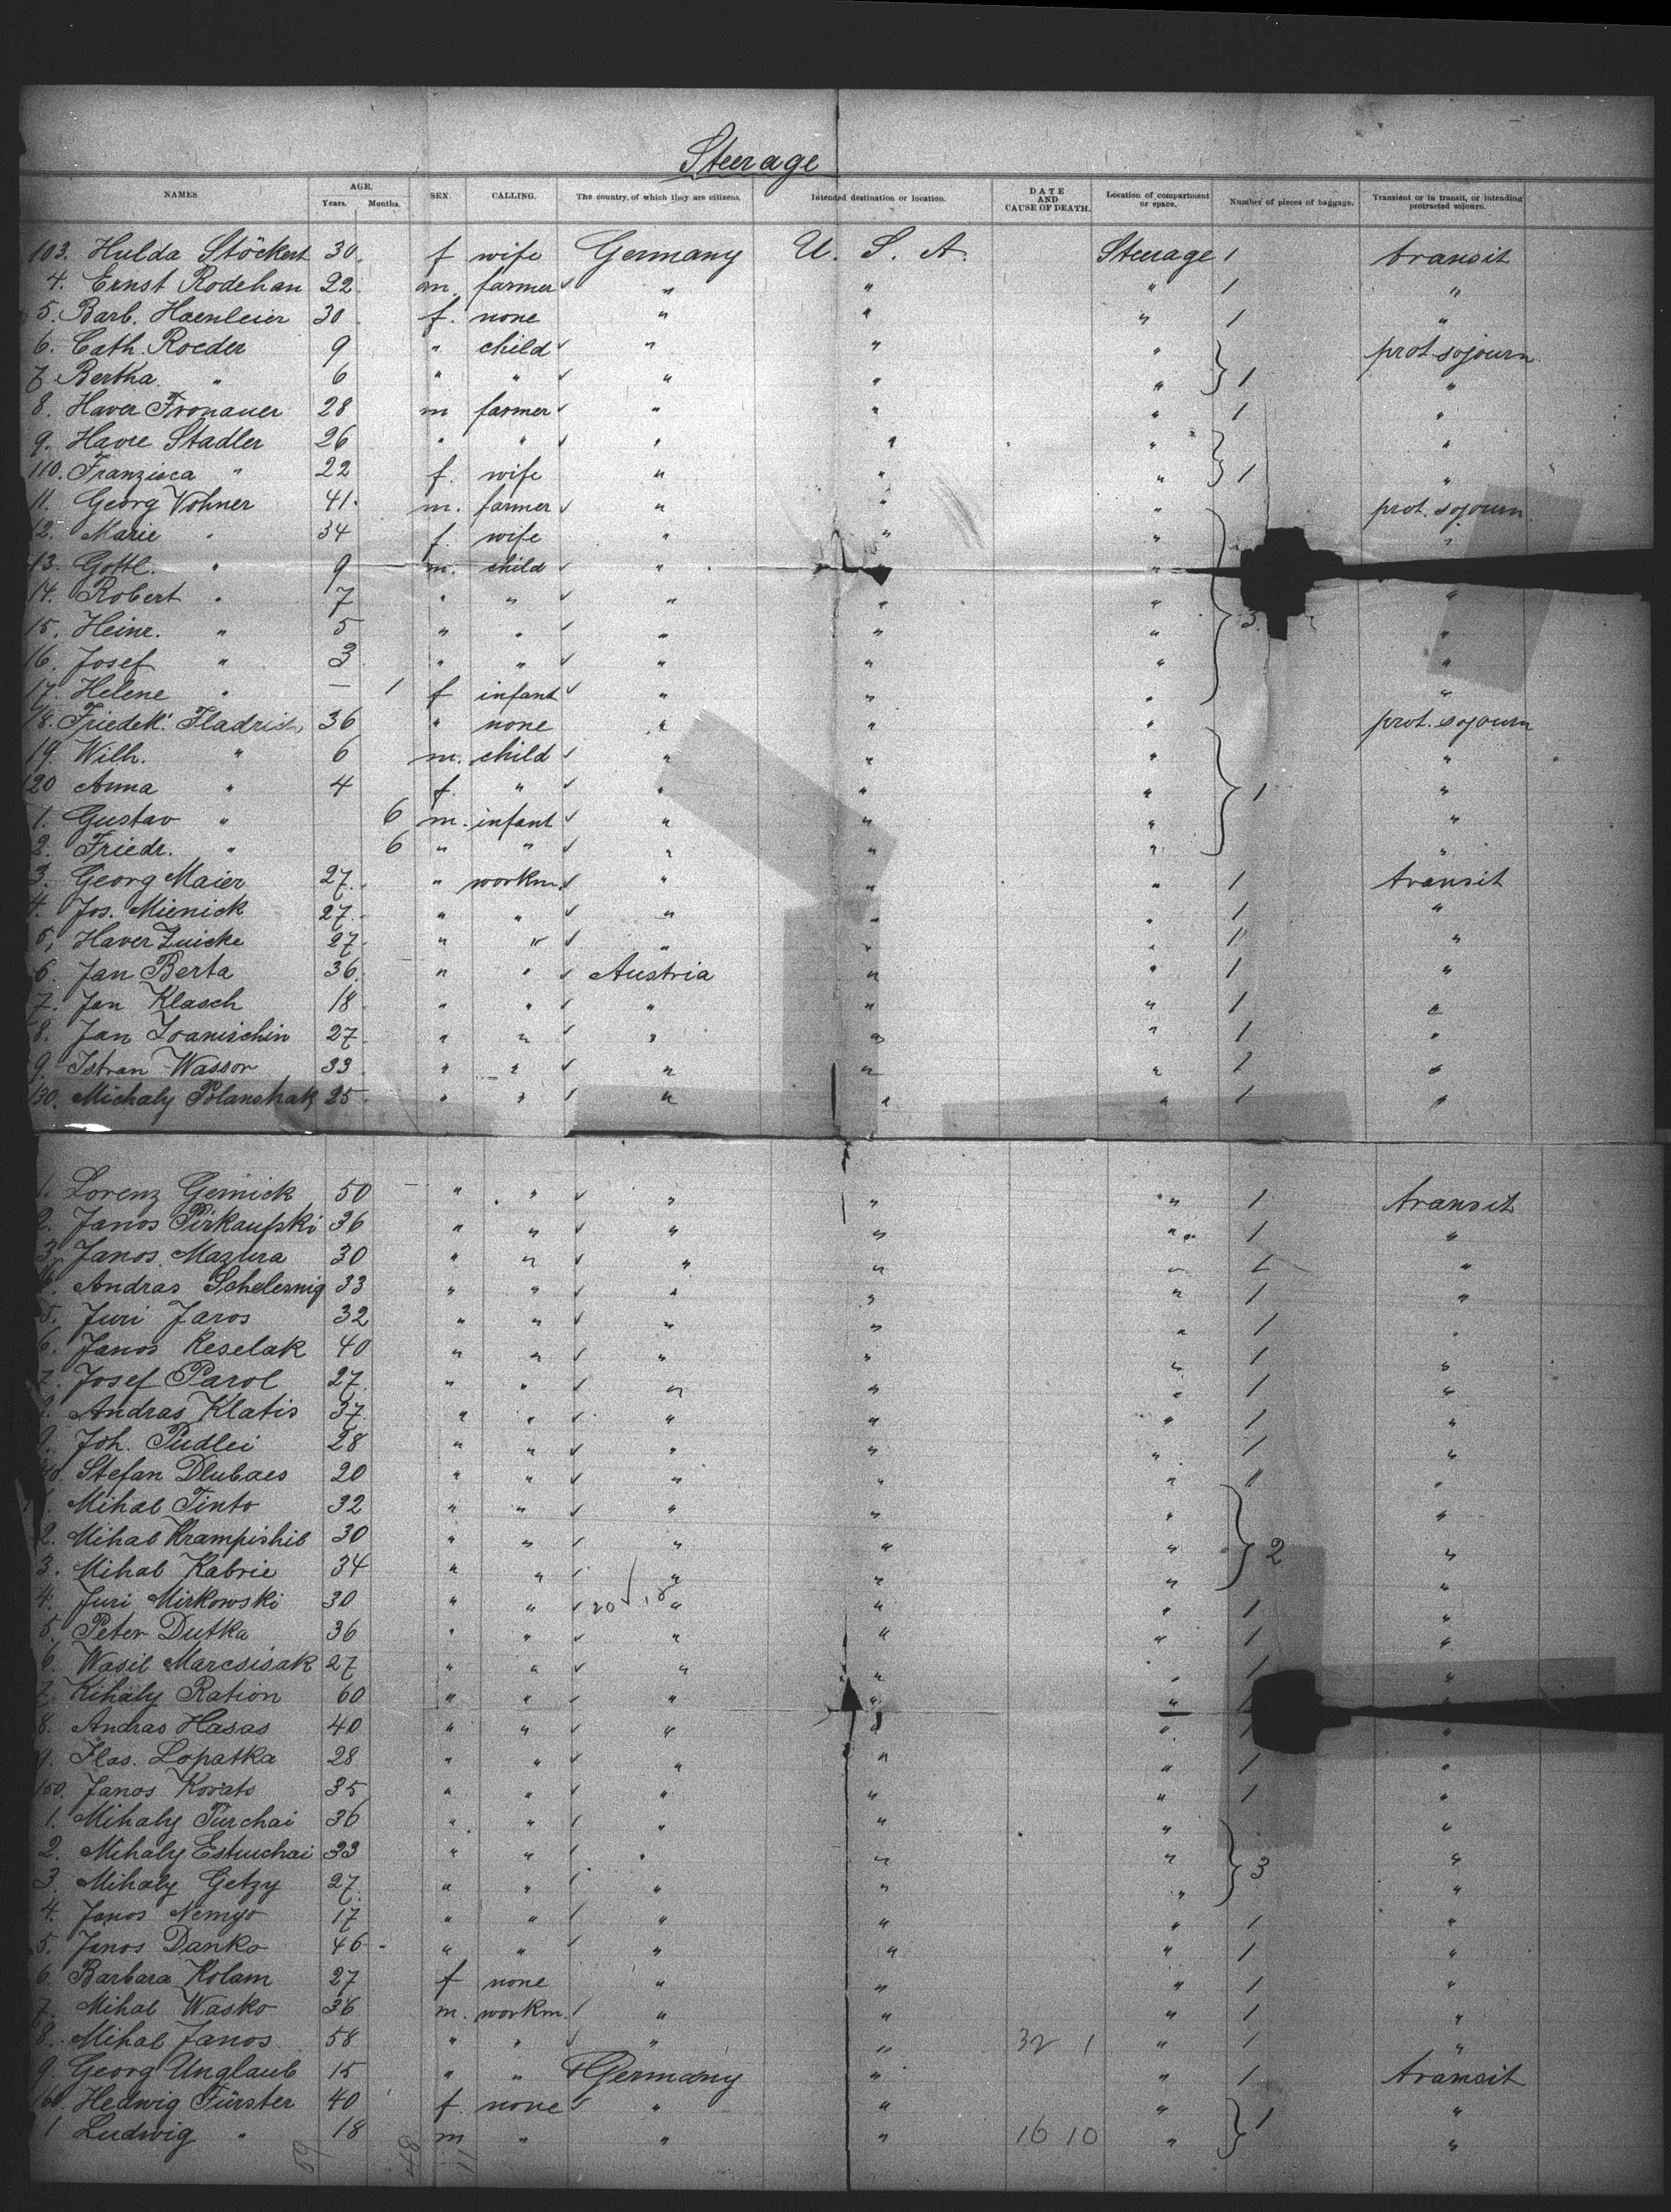 Steerage
NAMES AGE. Years. Months. SEX CALLING. The country, of which they are citizens. Intended destination or location. DATE AND CAUSE OF DEATH. Location of compartment or space. Number of pieces of baggage. Transient or in transit, or intending protracted sojourn.
103. Hulda Stöckert 30. f wife Germany U. S. A. Steerage 1 transit
4. Ernst Rodehan 22. m. farmer " " " 1 "
5. Barb. Haenleier 30 f. none " " " 1 "
6. Cath. Roeder 9 " child " " " prot. sojourn
7. Bertha " 6 " " " " " 1 "
8. Xaver Fronauer 28 m farmer " " " 1 "
9. Stadler 26 " " " " " "
110. Franzisca " 22 f. wife " " " 1 "
11. Georg Vohner 41. m. farmer " " " prot. sojourn
12. Marie " 34 f. wife " " " "
13. Gottl. " 9 m. child " " "
14. Robert " 7 " " " " " "
15. Heinr. " 5 " " " " " 3 "
16. Josef " 3 " " " " " "
17. Helene " — 1 f infant " " " "
18. Friedk. 36 " none " " " prot. sojourn
19. Wilh. " 6 m. child " " " "
120 Anna " 4 f. " " " " 1 "
1. Gustav " 6 m. infant " " " "
2. Friedr. " 6 " " " " " "
3. Georg Maier 27. " workm. " " " 1 transit
4. Jos. Mienick 27. " " " " " 1 "
5. Xaver Zuicke 27. " " " " " 1 "
6. Jan Berta 36. " " Austria " " 1 "
7. Jan Klasch 18 " " " " " 1 "
8. Jan 27 " " " " " 1 "
9. Istvan Wassor 33 " " " " " 1 "
130. Michaly Polanshak 25 " " " " " 1 "
1. Lorenz Gernick 50 " " " " " 1 transit
2. Janos 36 " " " " " 1 "
3. Janos Mazura 30 " " " " " 1 "
4. Andras 33 " " " " " 1 "
5. Juri Jaros 32 " " " " " 1 "
6. Janos Keselak 40 " " " " " 1 "
7. Josef Parol 27. " " " " " 1 "
8. Andras Klatis 37. " " " " " 1 "
9. Joh. Pudlei 28 " " " " " 1 "
140. Stefan Dlubaes 20 " " " " " "
1. Mihal Tinto 32 " " " " " "
2. Mihal Krampishil 30 " " " " " 2 "
3. Mihal Kabrie 34 " " " " " "
4. Juri Mirkowski 30 " " 20 " " " 1 "
5. Peter Dutka 36 " " " " " 1 "
6. Wasil Marcsisak 27 " " " " " 1 "
7. Kihaly Ration 60 " " " " " 1 "
8. Andras Hasas 40 " " " " " 1 "
9. Lopatka 28 " " " " " 1 "
150. Janos Kovats 35 " " " " " 1 "
1. Mihaly Turchai 36 " " " " " "
2. Mihaly Estuchai 33 " " " " " 3 "
3. Mihaly Getzy 27. " " " " " "
4. Janos Nemyo 17 " " " " " 1 "
5. Janos Danko 46 " " " " " 1 "
6. Barbara Kolam 27 f none " " " 1 "
7. Mihal Wasko 36 m. workm. " " " 1 "
8. Mihal Janos 58 " " " " 32 1 " 1 "
9. Georg Unglaub 15 " " Germany " " 1 transit
160. Hedwig Fürster 40 f. none " " " 1 "
1 Ludwig " 18 m " " " 16 10 " "
59 48 11